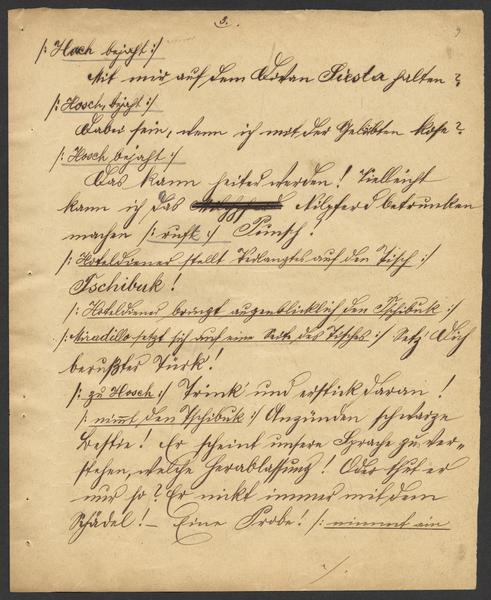 3.
/: Hosch bejaht :/
Mit mir auf dem Divan Siesta halten?
/: Hosch, bejaht :/
Dabei sein, wenn ich mit der Geliebten kose?
/: Hosch bejaht :/
Das kann heiter werden! Vielleicht
kann ich das Nilpferd betrunken
machen /: ruft :/ Punsch!
/: Hoteldiener stellt Verlangtes auf den Tisch :/
Tschibuk!
/: Hoteldiener bringt augenblicklich den Tschibuk :/
/: Miradillo setzt sich auf eine Seite des Tisches :/ Setz Dich
berußter Türk!
/: zu Hosch :/ Trink und erstick daran!
/: nimmt den Tschibuk :/ Anzünden schwarze
Bestie! Er scheint unsere Sprache zu ver-
stehen, welche Herablassung! Oder thut er
nur so? Er nickt immer mit dem
Schädel! – Eine Probe! /: nimmt ein